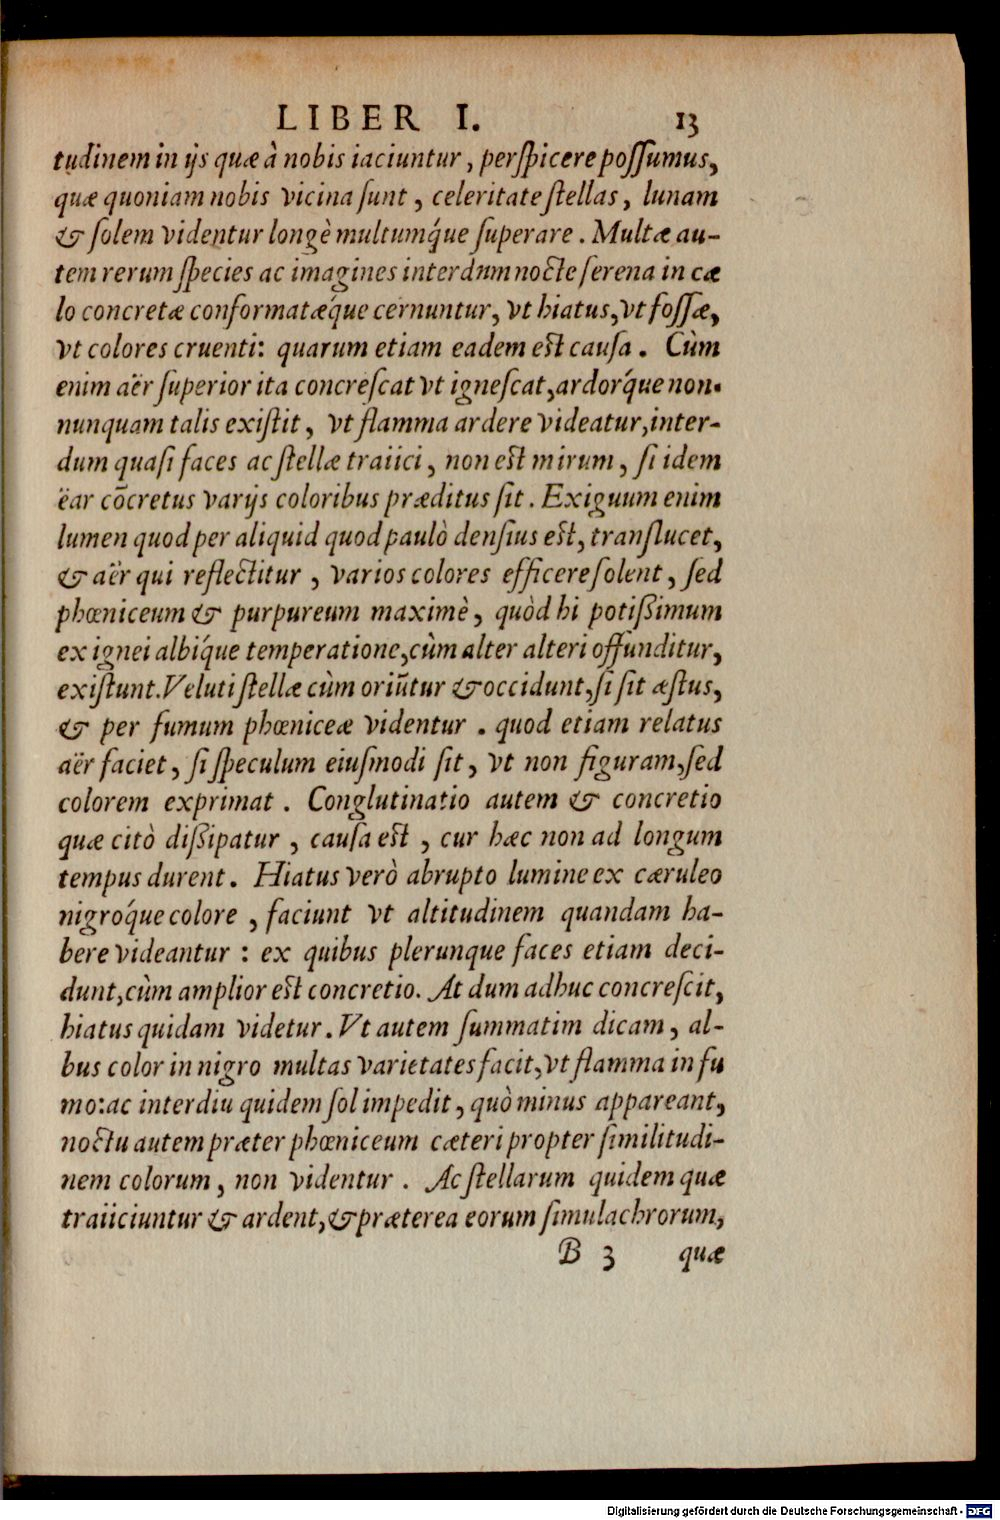 LIBER I. 13
tudinem in ijs quæ à nobis iaciuntur, perſpicere poſſumus,
quæ quoniam nobis vicina ſunt, celeritate ſtellas, lunam
& ſolem videntur longè multumq́ue ſuperare. Multæ au-
tem rerum ſpecies ac imagines interdum nocte ſerena in cæ
lo concretæ conformatæq́ue cernuntur, vt hiatus, vt foſſæ,
vt colores cruenti: quarum etiam eadem eſt cauſa. Cùm
enim aër ſuperior ita concreſcat vt igneſcat, ardorq́ue non-
nunquam talis exiſtit, vt flamma ardere videatur, inter-
dum quaſi faces ac ſtellæ traiici, non eſt mirum, ſi idem
ëar cõcretus varijs coloribus præditus ſit. Exiguum enim
lumen quod per aliquid quod paulò denſius eſt, tranſlucet,
& aër qui reflectitur, varios colores efficere ſolent, ſed
phœniceum & purpureum maximè, quòd hi potißimum
ex ignei albiq́ue temperatione, cùm alter alteri offunditur,
exiſtunt. Veluti ſtellæ cùm oriũtur & occidunt, ſi ſit æſtus,
& per fumum phœniceæ videntur. quod etiam relatus
aër faciet, ſi ſpeculum eiuſmodi ſit, vt non figuram, ſed
colorem exprimat. Conglutinatio autem & concretio
quæ citò dißipatur, cauſa eſt, cur hæc non ad longum
tempus durent. Hiatus verò abrupto lumine ex cæruleo
nigroq́ue colore, faciunt vt altitudinem quandam ha-
bere videantur: ex quibus plerunque faces etiam deci-
dunt, cùm amplior eſt concretio. At dum adhuc concreſcit,
hiatus quidam videtur. Vt autem ſummatim dicam, al-
bus color in nigro multas varietates facit, vt flamma in fu
mo: ac interdiu quidem ſol impedit, quò minus appareant,
noctu autem præter phœniceum cæteri propter ſimilitudi-
nem colorum, non videntur. Ac ſtellarum quidem quæ
traiiciuntur & ardent, & præterea eorum ſimulachrorum,
B 3 quæ
Digitalisierung gefördert durch die Deutsche Forschungsgemeinschaft - DFG